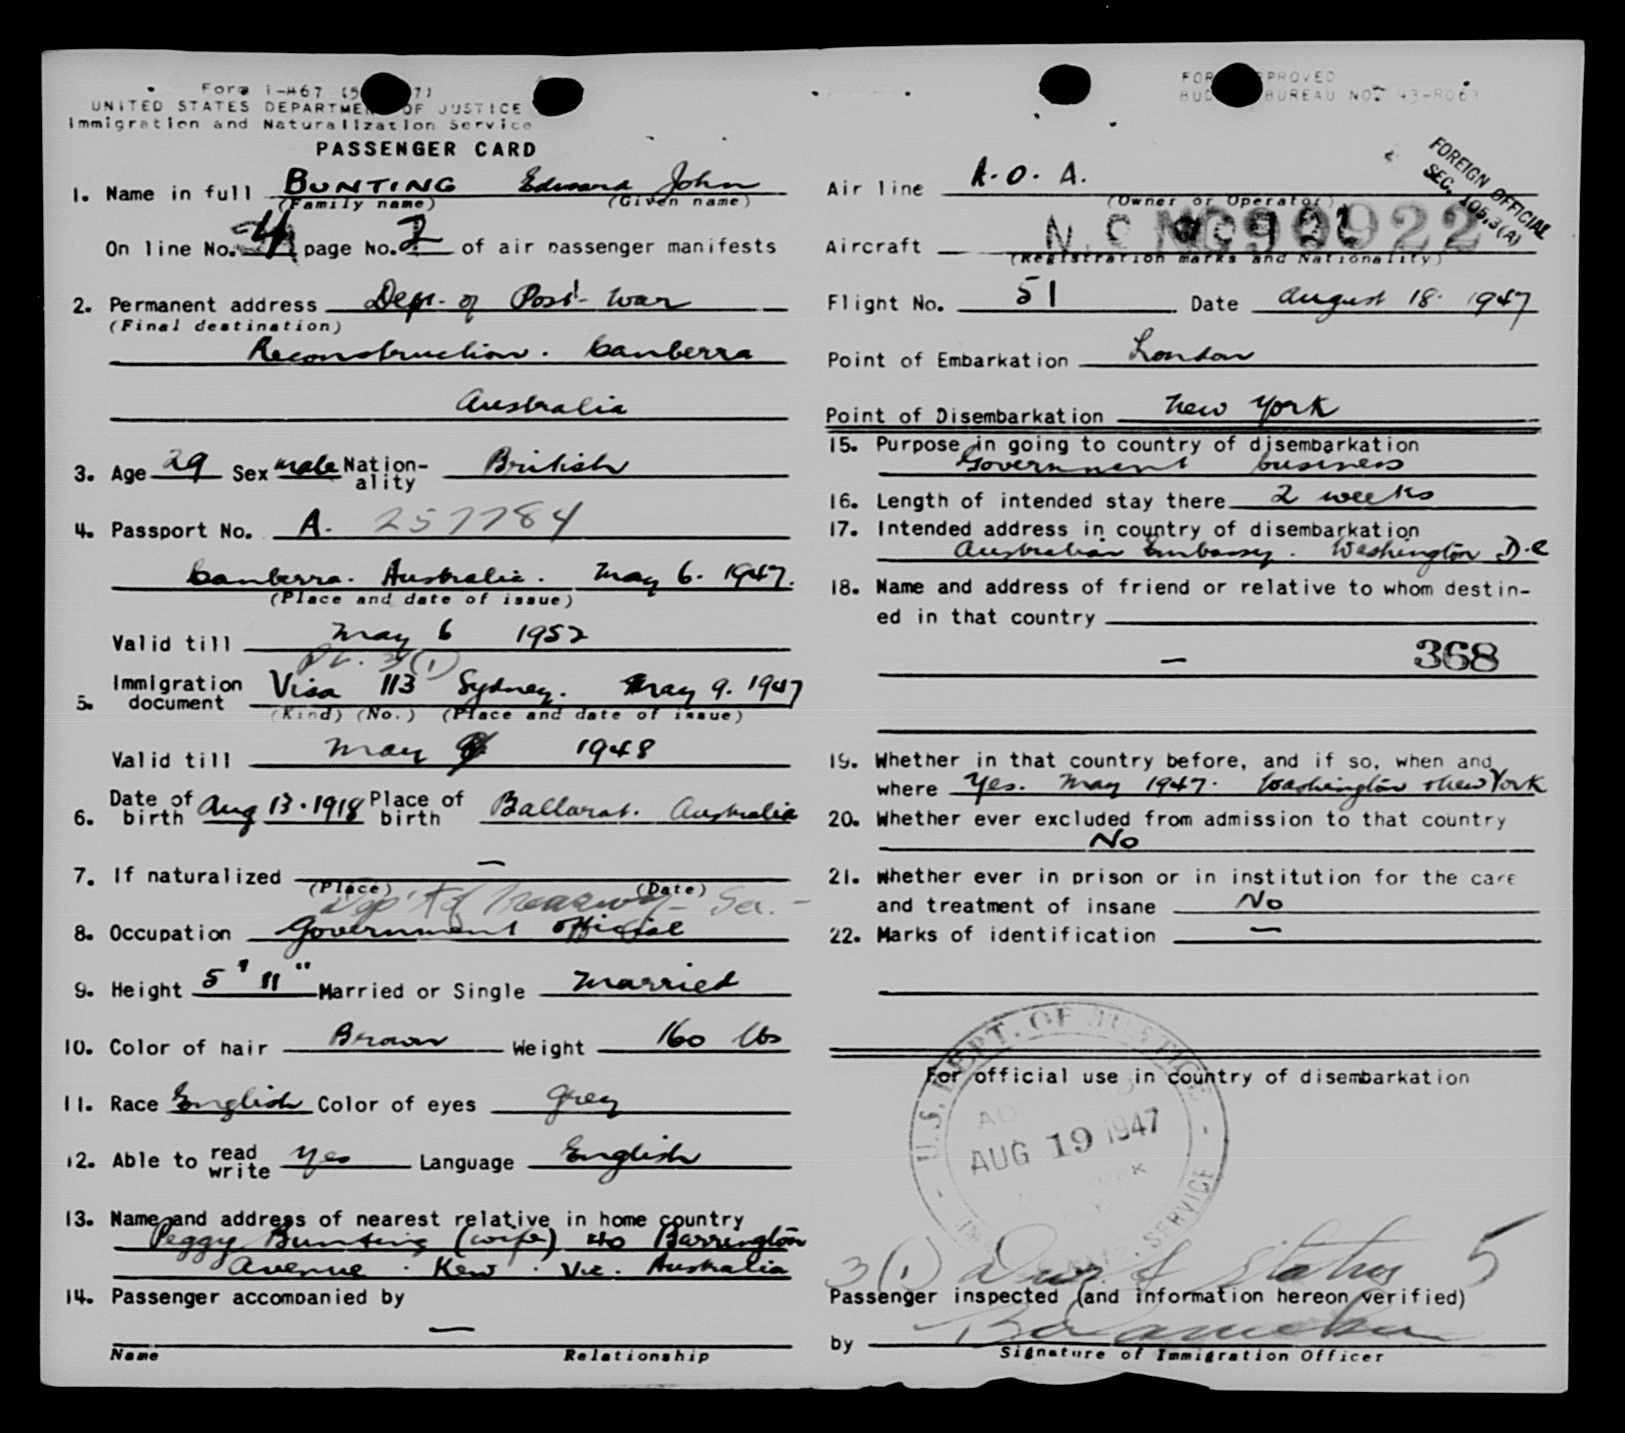 Form I-467
UNITED STATES DEPARTMENT OF JUSTICE
Immigration and Naturalization Service
PASSENGER CARD
1. Name in full BUNTING Edward John
(Family name) (Given name)
On line No. 4 page No. 2 of air passenger manifests
2. Permanent address Dept. of Post-War
(Final destination)
Reconstruction. Canberra
Australia
3. Age 29 Sex male Nationality British
4. Passport No. A. 257784
Canberra. Australia. May 6. 1947.
(Place and date of issue)
Valid till May 6 1952
3(1)
5. Immigration document Visa 113 Sydney. May 9. 1947
(Kind) (No.) (Place and date of issue)
Valid till May 1948
6. Date of birth Aug 13. 1918 Place of birth Ballarat. Australia
7. If naturalized —
(Place) (Date)
Dep't of Treasury - Sec. -
8. Occupation Government Official
9. Height 5' 11" Married or Single Married
10. Color of hair Brown Weight 160 lbs
11. Race English Color of eyes Grey
12. Able to read write Yes Language English
13. Name and address of nearest relative in home country
Peggy Bunting (wife) 40 Barrington
Avenue. Kew. Vic. Australia
14. Passenger accompanied by
—
Name Relationship
FORM APPROVED
BUDGET BUREAU NO. 43-R063
FOREIGN OFFICIAL
SEC. 105.3(A)
Air line A.O.A.
(Owner or Operator)
Aircraft N.C NC90922
(Registration marks and Nationality)
Flight No. 51 Date August 18. 1947
Point of Embarkation London
Point of Disembarkation New York
15. Purpose in going to country of disembarkation
Government business
16. Length of intended stay there 2 weeks
17. Intended address in country of disembarkation
Australian Embassy. Washington D.C
18. Name and address of friend or relative to whom destin-
ed in that country
— 368
19. Whether in that country before, and if so, when and
where Yes. May 1947. Washington & New York
20. Whether ever excluded from admission to that country
No
21. Whether ever in prison or in institution for the care
and treatment of insane No
22. Marks of identification —
For official use in country of disembarkation
U.S. DEPT. OF JUSTICE
AUG 19 1947
SERVICE
3(1) Dur. of Status 5
Passenger inspected (and information hereon verified)
by
Signature of Immigration Officer